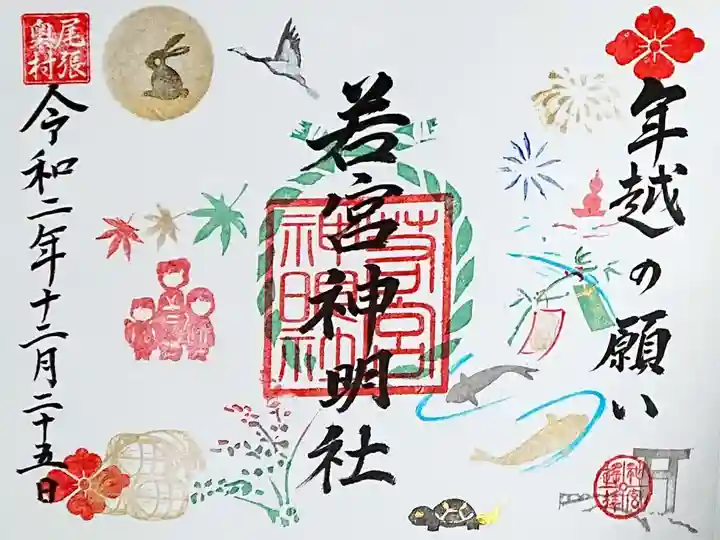 年越の願い
若宮神明社
若宮
神明社
尾張
奥村
令和二年十二月二十五日